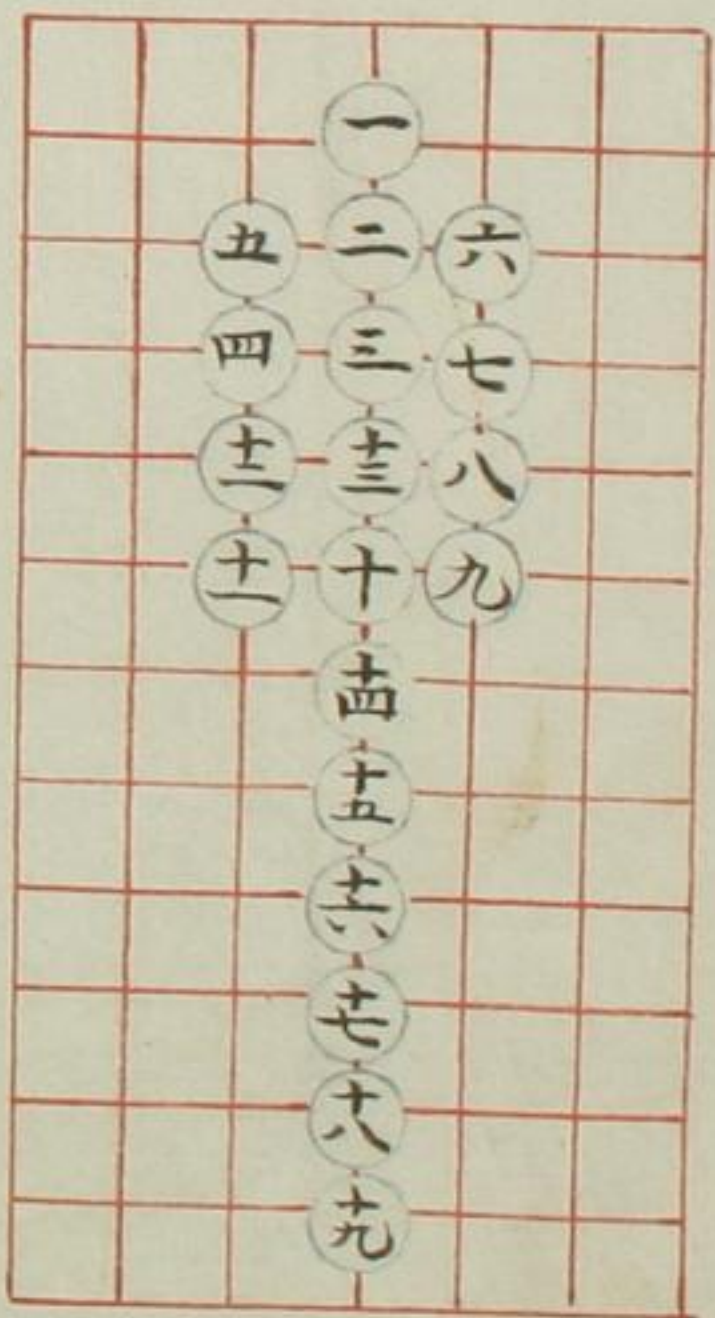 一
五 二 六
四 三 七
十二 十三 八
十一 十 九
十四
十五
十六
十七
十八
十九